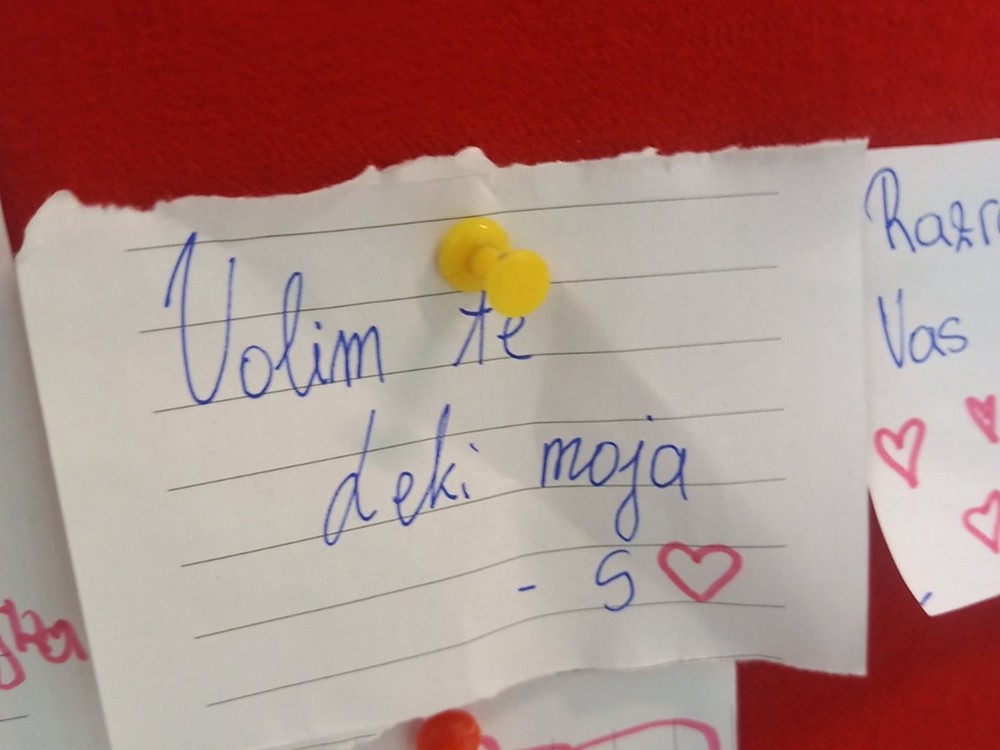 Volim te
deki moja
- S ♡
Vas